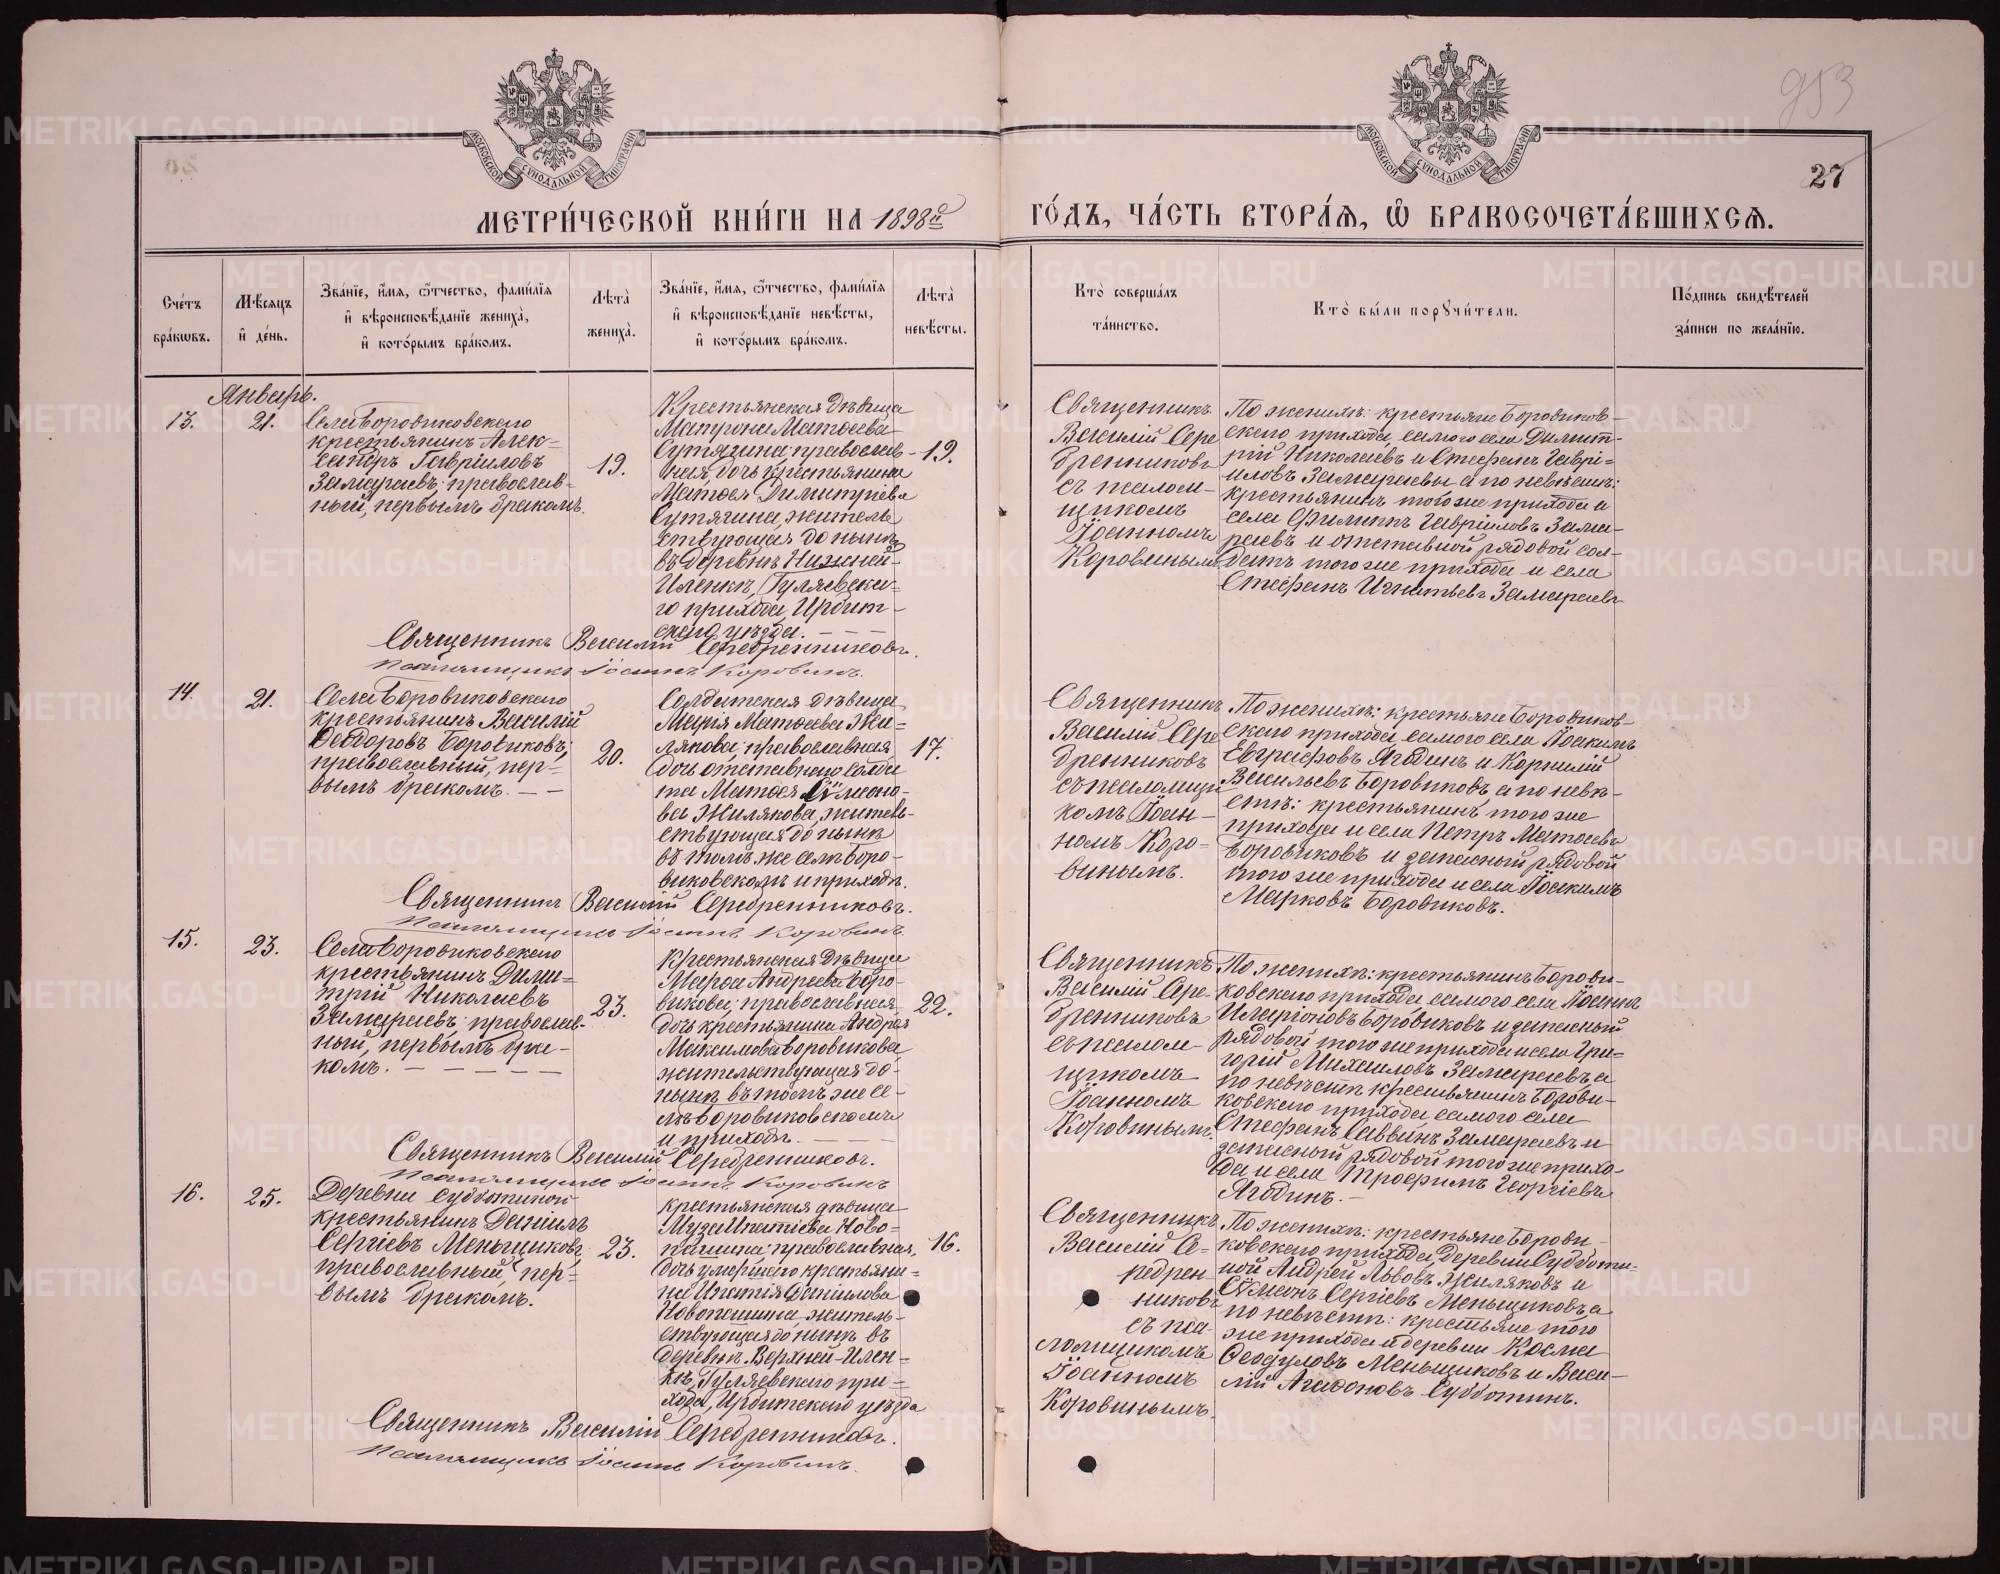 953
27
МОСКОВСКОЙ СУНОДАЛЬНОЙ ТИПОГРАФІИ
МОСКОВСКОЙ СУНОДАЛЬНОЙ ТИПОГРАФІИ
МЕТРИ́ЧЕСКОЙ КНИ́ГИ НА 1898й ГО́ДЪ, ЧА́СТЬ ВТОРА́Я, Ѡ БРАКОСОЧЕТА́ВШИХСѦ.
Сче́тъ
бра́кωвъ.
Мѣ́сяцъ
и҆ де́нь.
Зва́нїе, и҆́мя, ѻ҆́тчество, фами́лїя
и҆ вѣроисповѣ́данїе жениха̀,
и҆ кото́рымъ бра́комъ.
Лѣта̀
жениха̀.
Зва́нїе, и҆́мя, ѻ҆́тчество, фами́лїя
и҆ вѣроисповѣ́данїе невѣ́сты,
и҆ кото́рымъ бра́комъ.
Лѣта̀
невѣ́сты.
Кто̀ соверша́лъ
та́инство.
Кто̀ бы́ли порꙋчи́тели.
По́дпись свидѣ́телей
за́писи по жела́нїю.
Январь.
13.
21.
Села Боровиковскаго
крестьянинъ Алек-
сандръ Гавріиловъ
Замараевъ; православ-
ный, первымъ бракомъ.
19.
Крестьянская дѣвица
Матрона Матѳеева
Сутягина; православ-
ная, дочь крестьянина
Матѳея Димитріева
Сутягина, житель-
ствующая до нынѣ
въ деревнѣ Нижней-
Иленкѣ, Гуляевска-
го прихода, Ирбит-
скаго уѣзда. – – –
19.
Священникъ
Василій Сере
бренниковъ
съ псалом-
щикомъ
Іоанномъ
Коровинымъ
По женихѣ: крестьяне Боровиков-
скаго прихода, самого села Димит-
рій Николаевъ и Стефанъ Гаврі-
иловъ Замараевы а по невѣстѣ:
крестьянинъ того же прихода и
села Филиппъ Гавріиловъ Зама-
раевъ и отставной рядовой сол-
датъ того же прихода и села
Стефанъ Игнатьевъ Замараевъ
Священникъ Василій Серебренниковъ.
Псаломщикъ Іоаннъ Коровинъ.
14.
21.
Села Боровиковскаго
крестьянинъ Василій
Ѳеодоровъ Боровиковъ;
православный, пер-
вымъ бракомъ. – –
20.
Солдатская дѣвица
Марія Матѳеева Жи-
лякова; православная
дочь отставнаго солда
та Матѳея Симеоно-
ва Жилякова, житель-
ствующая до нынѣ
въ томъ же селѣ Боро-
виковскомъ и приходѣ.
17.
Священникъ
Василій Сере
бренниковъ
съ псаломщи
комъ Іоан-
номъ Коро-
винымъ.
По женихѣ: крестьяне Боровиков-
скаго прихода, самого села Іоакимъ
Евграфовъ Ягодинъ и Корнилій
Васильевъ Боровиковъ а по невѣ-
стѣ: крестьянинъ того же
прихода и села Петръ Матѳеевъ
Боровиковъ и запасный рядовой
того же прихода и села Іоакимъ
Марковъ Боровиковъ.
Священникъ Василій Серебренниковъ.
Псаломщикъ Іоаннъ Коровинъ.
15.
23.
Села Боровиковскаго
крестьянинъ Дими-
трій Николаевъ
Замараевъ; православ-
ный, первымъ бра-
комъ. – – – – –
23.
Крестьянская дѣвица
Марѳа Андреева Боро-
викова; православная
дочь крестьянина Андрея
Максимова Боровикова
жительствующая до-
нынѣ въ томъ же се-
лѣ Боровиковскомъ
и приходѣ. – – –
22.
Священникъ
Василій Сере-
бренниковъ
съ псалом-
щикомъ
Іоанномъ
Коровинымъ.
По женихѣ: крестьянинъ Борови-
ковскаго прихода самого села Іоаннъ
Иларіоновъ Боровиковъ и запасный
рядовой того же прихода и села Гри-
горій Михаиловъ Замараевъ, а
по невѣстѣ крестьянинъ Борови-
ковскаго прихода самого села
Стефанъ Саввинъ Замараевъ и
запасный рядовой того же прихо-
да и села Трофимъ Георгіевъ
Ягодинъ. –
Священникъ Василій Серебренниковъ.
Псаломщикъ Іоаннъ Коровинъ
16.
25.
Деревни Субботиной
крестьянинъ Даніилъ
Сергіевъ Меньщиковъ;
православный, пер-
вымъ бракомъ.
23.
Крестьянская дѣвица
Муза Ипатіева Ново-
пашина; православная,
дочь умершаго крестьяни-
на Ипатія Даніилова
Новопашина, житель-
ствующая до нынѣ въ
деревнѣ Верхней-Илен-
кѣ, Гуляевскаго при-
хода, Ирбитскаго уѣзда
16.
Священникъ
Василій Се-
ребрен
никовъ
съ пса-
ломщикомъ
Іоанномъ
Коровинымъ.
По женихѣ: крестьяне Борови-
ковскаго прихода, деревни Субботи-
ной Андрей Львовъ Жиляковъ и
Симеонъ Сергіевъ Меньщиковъ, а
по невѣстѣ: крестьяне того
же прихода и деревни Косма
Ѳеодуловъ Меньщиковъ и Васи-
лій Агафоновъ Субботинъ.
Священникъ Василій Серебренниковъ.
Псаломщикъ Іоаннъ Коровинъ.
METRIKI.GASO-URAL.RU